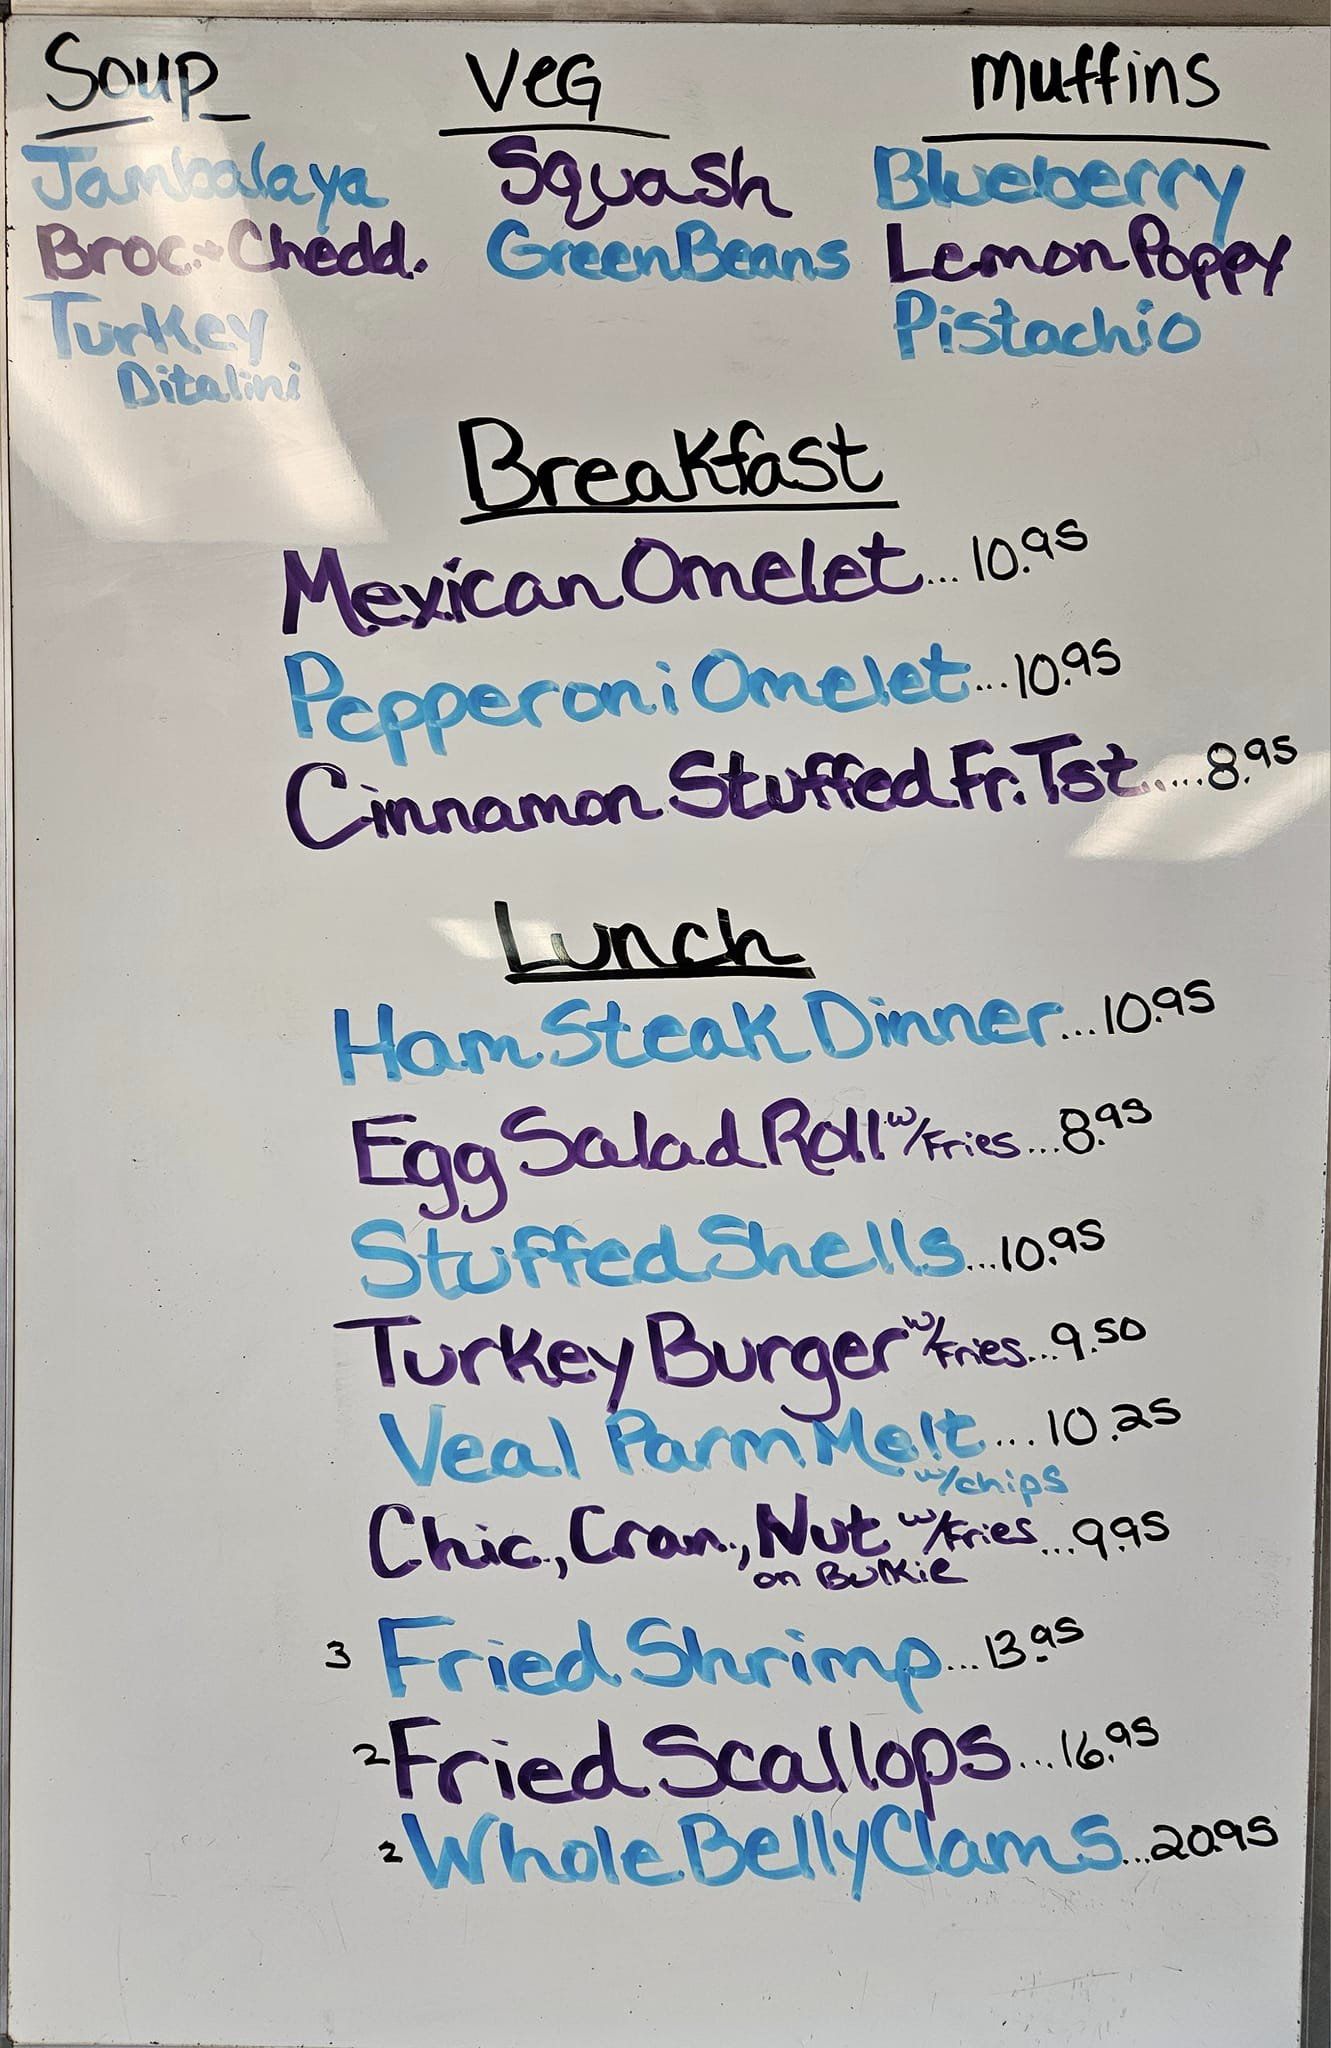 Soup
Veg
Muffins
Jambalaya
Squash
Blueberry
Broc.+Chedd.
Green Beans
Lemon Poppy
Turkey
Ditalini
Pistachio
Breakfast
Mexican Omelet...10.95
Pepperoni Omelet...10.95
Cinnamon Stuffed Fr. Tst.....8.95
Lunch
Ham Steak Dinner...10.95
Egg Salad Roll w/Fries...8.95
Stuffed Shells...10.95
Turkey Burger w/Fries...9.50
Veal Parm Melt...10.25
w/chips
Chic., Cran., Nut w/Fries...9.95
on Bulkie
3 Fried Shrimp...13.95
2 Fried Scallops...16.95
2 Whole Belly Clams...20.95